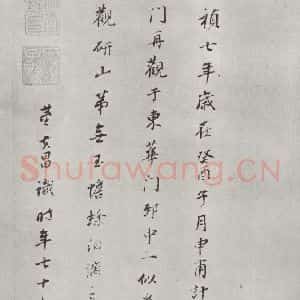 禎七年歲在癸酉子月申甫計
門再觀于東華門邸中二似
觀研山第無玉蟾蜍淚滴
董其昌識時年七十
Shufawang.CN